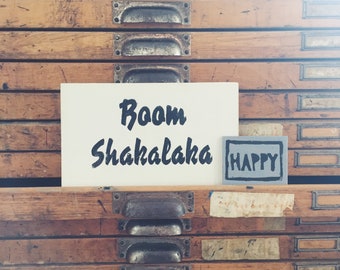 Boom
Shakalaka
HAPPY